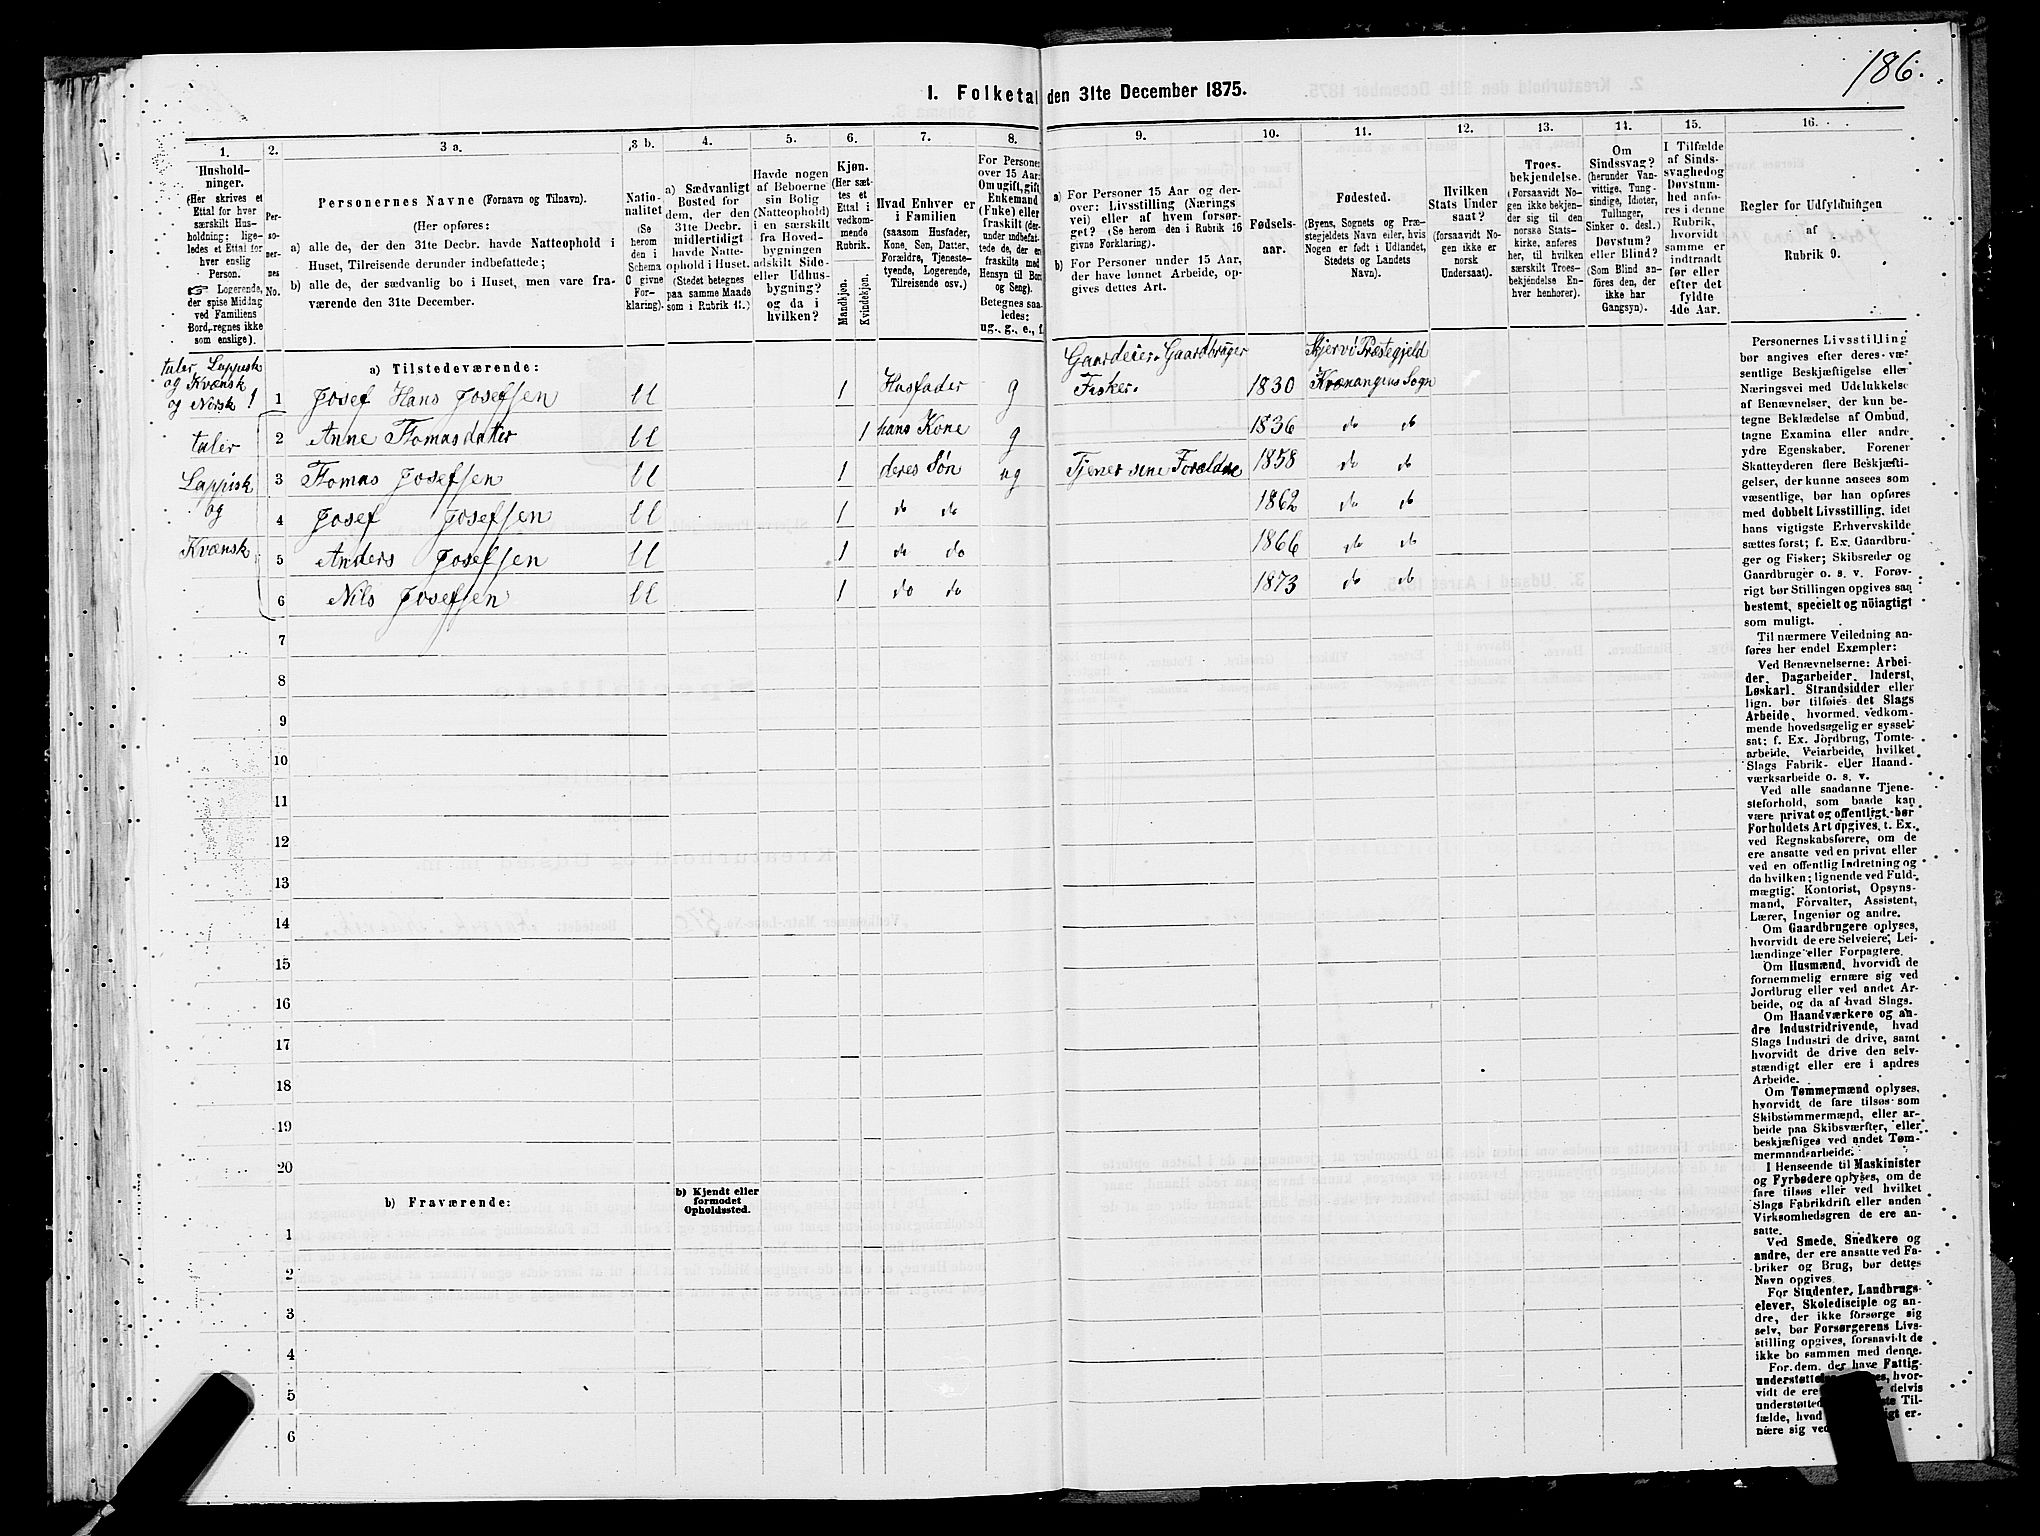 186.
I. Folketal den 31te December 1875.
1.
2.
3 a.
3 b.
4.
5.
6.
7.
8.
9.
10.
11.
12.
13.
14.
15.
16.
Hushold-
ninger.
(Her skrives et
Ettal for hver
særskilt Hus-
holdning; lige-
ledes et Ettal for
hver enslig
Person.
☞ Logerende,
der spise Middag
ved Familiens
Bord, regnes ikke
som enslige).
Per-
so-
ner-
nes
No.
Personernes Navne (Fornavn og Tilnavn).
(Her opføres:
a) alle de, der den 31te Decbr. havde Natteophold i
Huset, Tilreisende derunder indbefattede;
b) alle de, der sædvanlig bo i Huset, men vare fra-
værende den 31te December.
Natio-
nalitet
(Se
herom
den i
Schema
C givne
For-
klaring).
a) Sædvanligt
Bosted for
dem, der den
31te Decbr.
midlertidigt
havde Natte-
ophold i Huset.
(Stedet betegnes
paa samme Maade
som i Rubrik 11.)
Havde nogen
af Beboerne
sin Bolig
(Natteophold)
i en særskilt
fra Hoved-
bygningen
adskilt Side-
eller Udhus-
bygning?
og da i
hvilken?
Kjøn.
(Her sæt-
tes et
Ettal i
vedkom-
mende
Rubrik.
Mandkjøn.
Kvindekjøn.
Hvad Enhver er
i Familien
(saasom Husfader,
Kone, Søn, Datter,
Forældre, Tjeneste-
tyende, Logerende,
Tilreisende osv.)
For Personer
over 15 Aar:
Om ugift, gift,
Enkemand
(Enke) eller
fraskilt (der-
under indbefat-
tede de, der ere
fraskilte med
Hensyn til Bord
og Seng).
Betegnes saa-
ledes:
ug., g., e., f.
a) For Personer 15 Aar og der-
over: Livsstilling (Nærings-
vei) eller af hvem forsør-
get? (Se herom den i Rubrik 16
givne Forklaring).
b) For Personer under 15 Aar,
der have lønnet Arbeide, op-
gives dettes Art.
Fødsels-
aar.
Fødested.
(Byens, Sognets og Præ-
stegjeldets Navn eller, hvis
Nogen er født i Udlandet,
Stedets og Landets
Navn).
Hvilken
Stats Under
saat?
(forsaavidt No-
gen ikke er
norsk
Undersaat).
Troes-
bekjendelse.
(Forsaavidt No-
gen ikke bekjen-
der sig til den
norske Stats-
kirke, anføres
her, til hvilken
særskilt Troes-
bekjendelse En-
hver henhører).
Om
Sindssvag?
(herunder Van-
vittige, Tung-
sindige, Idioter,
Tullinger,
Sinker o. desl.)
Døvstum?
eller Blind?
(Som Blind an-
føres den, der
ikke har
Gangsyn).
I Tilfælde
af Sinds-
svaghed og
Døvstum-
hed anfø-
res i denne
Rubrik,
hvorvidt
samme er
indtraadt
før eller
efter det
fyldte
4de Aar.
Regler for Udfyldningen
af
Rubrik 9.
a) Tilstedeværende:
taler Lappisk
og Kvænsk
og Norsk 1
1 Josef Hans Josefsen U 1 Husfader g Gaardeier. Gaardbruger Fisker. 1830 Skjervø Præstegjeld Kvænangens Sogn
taler
2 Anne Thomasdatter U 1 hans Kone g 1836 do do
Lappisk
3 Thomas Josefsen U 1 deres Søn ug Tjener sine Forældre 1858 do do
og
4 Josef Josefsen U 1 do do 1862 do do
Kvænsk
5 Anders Josefsen U 1 do do 1866 do do
6 Nils Josefsen U 1 do do 1873 do do
7
8
9
10
11
12
13
14
15
16
17
18
19
20
b) Fraværende:
b) Kjendt eller
formodet
Opholdssted.
1
2
3
4
5
6
Personernes Livsstilling
bør angives efter deres væ-
sentlige Beskjæftigelse eller
Næringsvei med Udelukkelse
af Benævnelser, der kun be-
tegne Beklædelse af Ombud,
tagne Examina eller andre
ydre Egenskaber. Forener
Skatteyderen flere Beskjæfti-
gelser, der kunne ansees som
væsentlige, bør han opføres
med dobbelt Livsstilling, idet
hans vigtigste Erhvervskilde
sættes først; f. Ex. Gaardbru-
ger og Fisker; Skibsreder og
Gaardbruger o. s. v. Forøv-
rigt bør Stillingen opgives saa
bestemt, specielt og nöiagtigt
som muligt.
Til nærmere Veiledning an-
føres her endel Exempler:
Ved Benævnelserne: Arbei-
der, Dagarbeider, Inderst,
Løskarl, Strandsidder eller
lign. bør tilføies det Slags
Arbeide, hvormed vedkom-
mende hovedsagelig er syssel-
sat; f. Ex. Jordbrug, Tomte-
arbeide, Veiarbeide, hvilket
Slags Fabrik- eller Haand-
værksarbeide o. s. v.
Ved alle saadanne Tjene-
steforhold, som baade kan
være privat og offentligt, bør
Forholdets Art opgives, t. Ex.
ved Regnskabsførere, om de
ere ansatte ved en privat eller
ved en offentlig Indretning og
da hvilken; lignende ved Fuld-
mægtig, Kontorist, Opsyns-
mand, Forvalter, Assistent,
Lærer, Ingeniør og andre.
Om Gaardbrugere oplyses,
hvorvidt de ere Selveiere, Lei-
lændinge eller Forpagtere.
Om Husmænd, hvorvidt de
fornemmelig ernære sig ved
Jordbrug eller ved andet Ar-
beide, og da af hvad Slags.
Om Haandværkere og an-
dre Industridrivende, hvad
Slags Industri de drive, samt
hvorvidt de drive den selv-
stændigt eller ere i andres
Arbeide.
Om Tømmermænd oplyses,
hvorvidt de fare tilsøs som
Skibstømmermænd, eller ar-
beide paa Skibsværfter, eller
beskjæftiges ved andet Tøm-
mermandsarbeide.
I Henseende til Maskinister
og Fyrbødere oplyses, om de
fare tilsøs eller ved hvilket
Slags Fabrikdrift eller anden
Virksomhedsgren de ere an-
satte.
Ved Smede, Snedkere og
andre, der ere ansatte ved Fa-
briker og Brug, bør dettes
Navn opgives.
For Studenter, Landbrugs-
elever, Skoledisciple og an-
dre, der ikke forsørge sig
selv, bør Forsørgerens Livs-
stilling opgives, forsaavidt de
ikke bo sammen med denne.
For dem, der have Fattig-
understøttelse, hvor-
vidt de ere delvis
understøttede Til-
fælde, hvad er-
nære sig ved